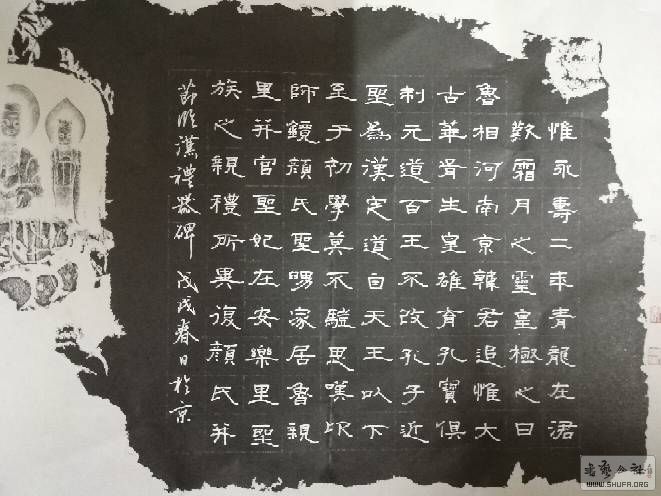 惟永壽二年青龍在涒
歎霜月之靈皇極之日
魯相河南京韓君追惟大
古華胥生皇雄育孔寶俱
制元道百王不改孔子近
聖為漢定道自天王以下
至于初學莫不驥思嘆卬
師鏡顏氏聖舅家居魯親
里并官聖妃在安樂里聖
族之親禮所異復顏氏并
節臨漢禮器碑 戊戌春日於京
WWW.SHUFA.ORG